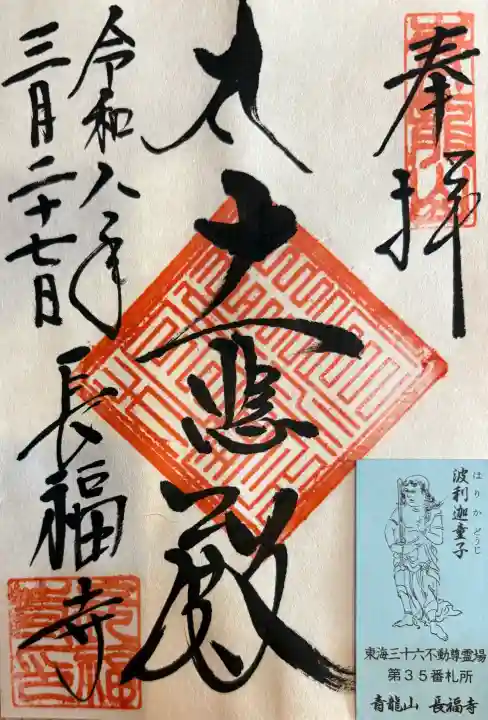 奉拝
大悲殿
令和八年
三月二十七日
長福寺
はりかどうじ
波利迦童子
東海三十六不動尊霊場
第35番札所
青龍山 長福寺